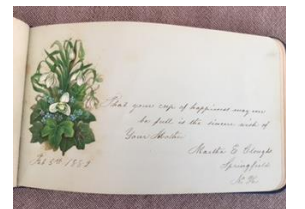 That your cup of happiness may
be full is the sincere wish of
Your
Martha E Clough
Springfield
N. H.
Feb 5th 1889